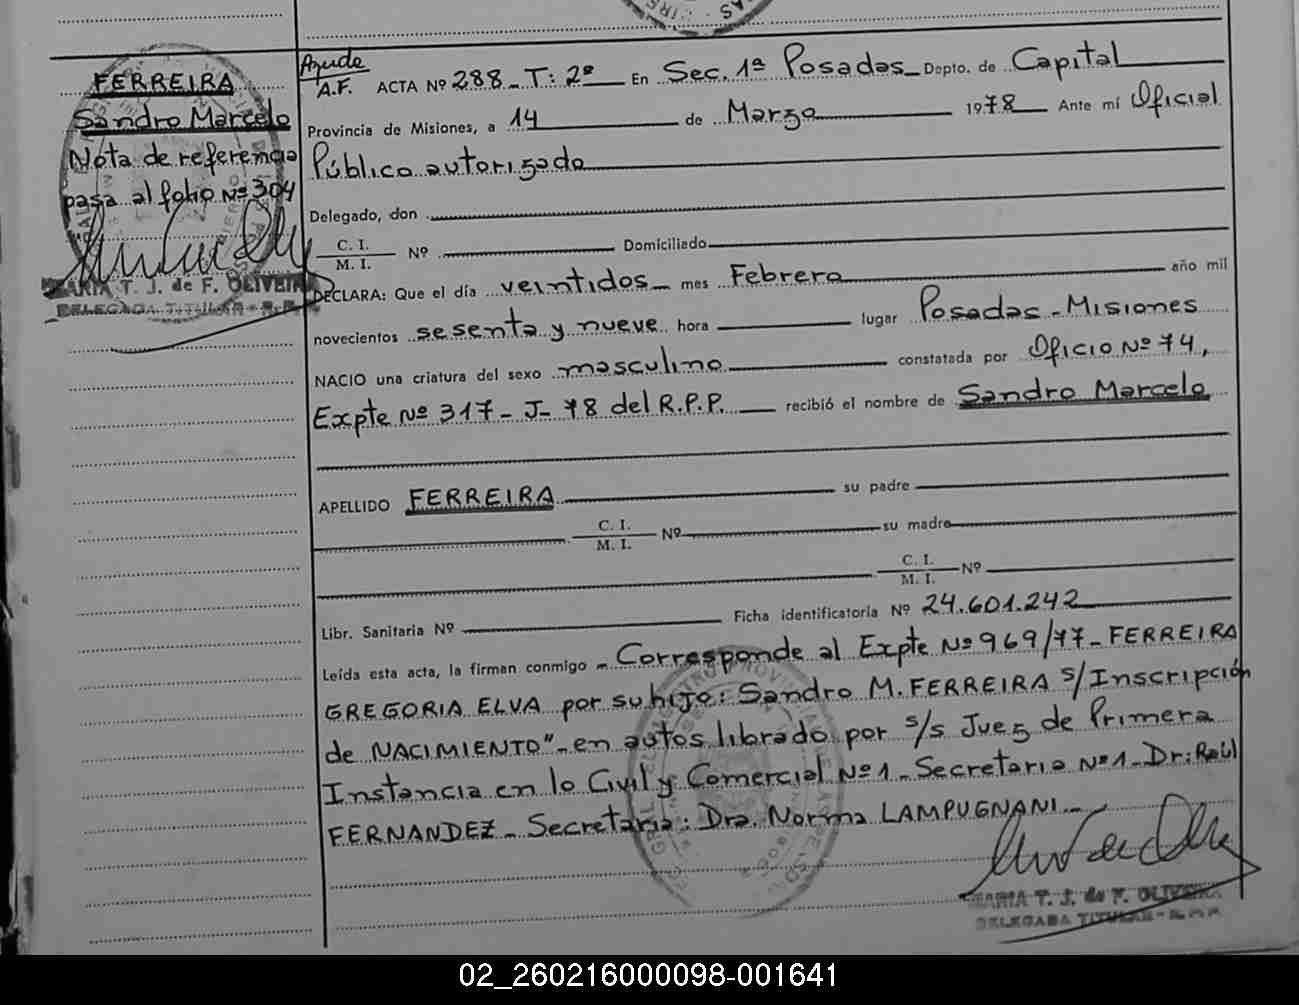 FERREIRA
Sandro Marcelo
Nota de referencia
pasa al folio Nº 304
MARIA T. J. de F. OLIVEIRA
DELEGADA TITULAR - R.P.P.
Ayude
A.F. ACTA Nº 288 - T: 2º En Sec. 1ª Posadas - Depto. de Capital
Provincia de Misiones, a 14 de Marzo 1978 Ante mí Oficial
Público autorizado
Delegado, don
C. I.
M. I. Nº Domiciliado
DECLARA: Que el día veintidos - mes Febrero año mil
novecientos sesenta y nueve hora lugar Posadas - Misiones
NACIO una criatura del sexo masculino constatada por Oficio Nº 74,
Expte Nº 317 - J - 78 del R.P.P. recibió el nombre de Sandro Marcelo
APELLIDO FERREIRA su padre
C. I.
M. I. Nº su madre
C. I.
M. I. Nº
Libr. Sanitaria Nº Ficha identificatoria Nº 24.601.242
Leída esta acta, la firman conmigo - Corresponde al Expte Nº 969/77 - FERREIRA
GREGORIA ELVA por su hijo: Sandro M. FERREIRA s/Inscripción
de NACIMIENTO" - en autos librado por s/s Juez de Primera
Instancia en lo Civil y Comercial Nº 1 - Secretaria Nº 1 - Dr: Raúl
FERNANDEZ - Secretaria: Dra. Norma LAMPUGNANI -
MARIA T. J. de F. OLIVEIRA
DELEGADA TITULAR - R.P.P.
02_260216000098-001641